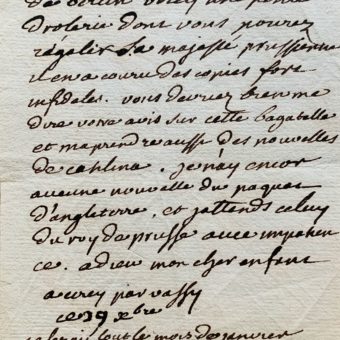 de berlin voicy une petite
drolerie dont vous pourez
régaler sa majesté prussienne
il en a couru des copies fort
infideles. vous devriez bien me
dire votre avis sur cette bagatelle
et m'aprendre aussi des nouvelles
de catilina. je n'ay encor
aucune nouvelle du paquet
d'angleterre, et j'attends celuy
du roy de prusse avec impatien
ce. adieu mon cher enfant
a cirey par vassy
ce 29 xbre
tout le mois de janvier